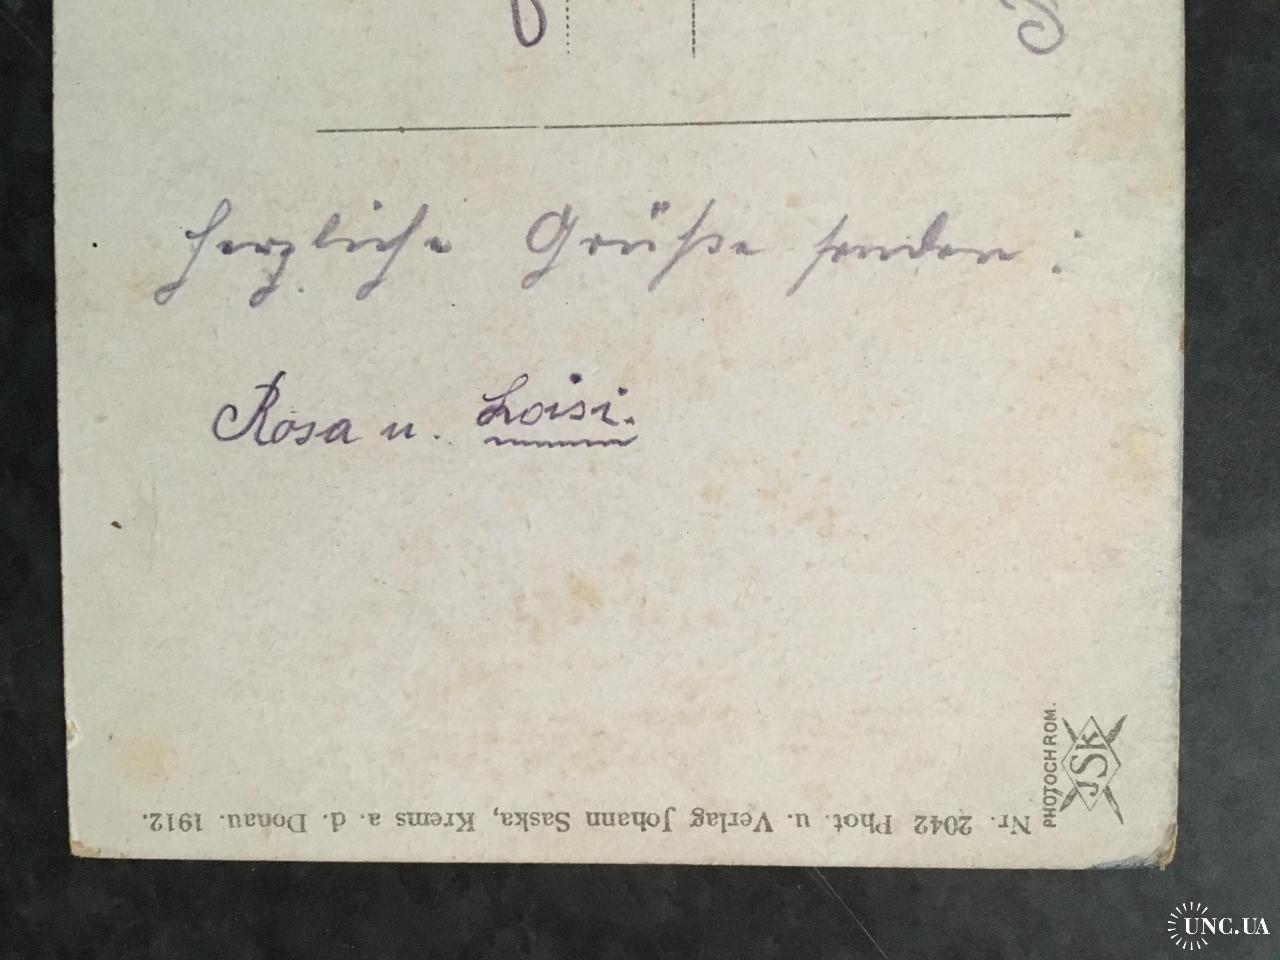 Herzliche Grüße senden:
Rosa u. Loisi.
PHOTOCHROM.
JSK
Nr. 2042 Phot. u. Verlag Johann Saska, Krems a. d. Donau. 1912.
UNC.UA